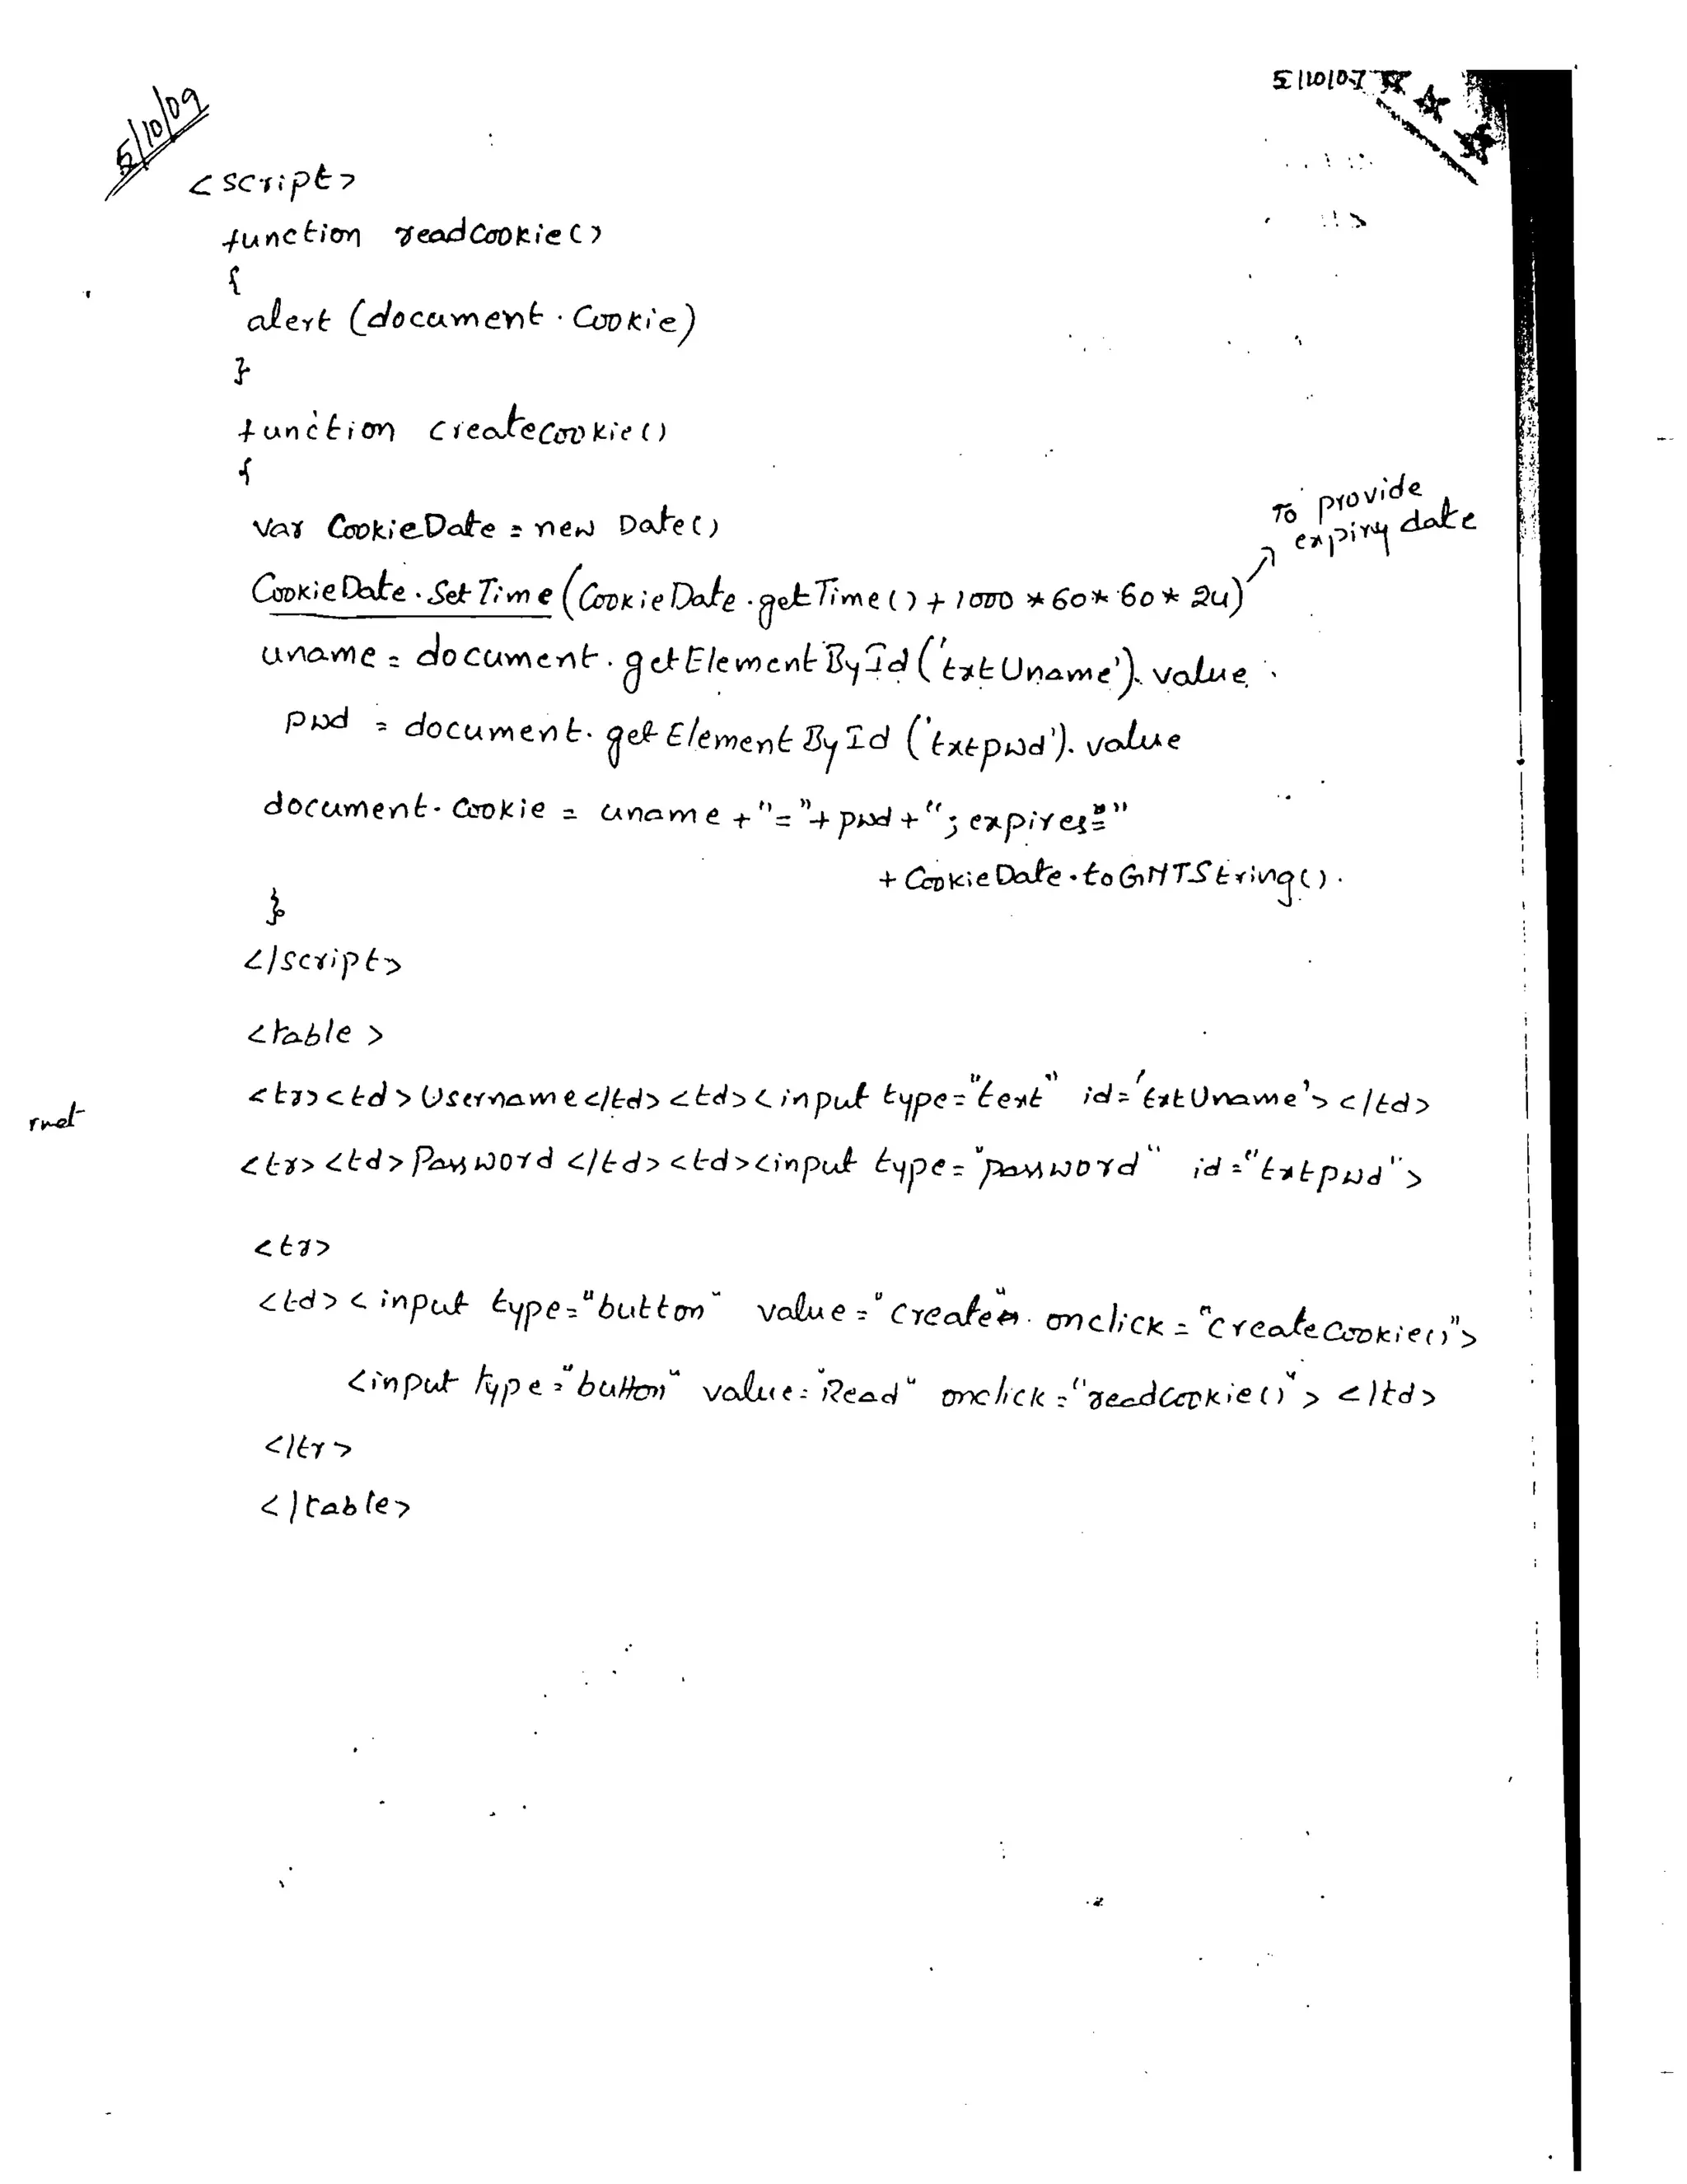 5/10/09
5/10/07
<script>
function readCookie()
{
alert (document.Cookie)
}
function createCookie()
{
var CookieDate = new Date()
To provide
expiry date
CookieDate.SetTime(CookieDate.getTime()+1000*60*60*24)
uname = document.getElementById('txtUname').value
pwd = document.getElementById('txtpwd').value
document.cookie = uname+"="+pwd+"; expires="
+ CookieDate.toGMTString().
}
</script>
<table>
<tr><td>Username</td><td><input type="text" id='txtUname'></td>
rnet
<tr><td>Password</td><td><input type="password" id="txtpwd">
<tr>
<td><input type="button" value="create" onclick="createCookie()">
<input type="button" value="Read" onclick="readCookie()"></td>
</tr>
</table>